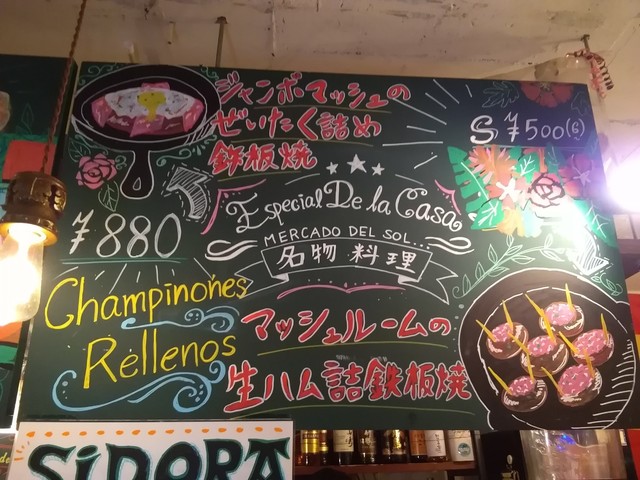 ジャンボマッシュの
ぜいたく詰め
鉄板焼
S ¥500(6)
¥880
Especial De la Casa
MERCADO DEL SOL...
名物料理
Champinones
Rellenos
マッシュルームの
生ハム詰鉄板焼
SiDORA